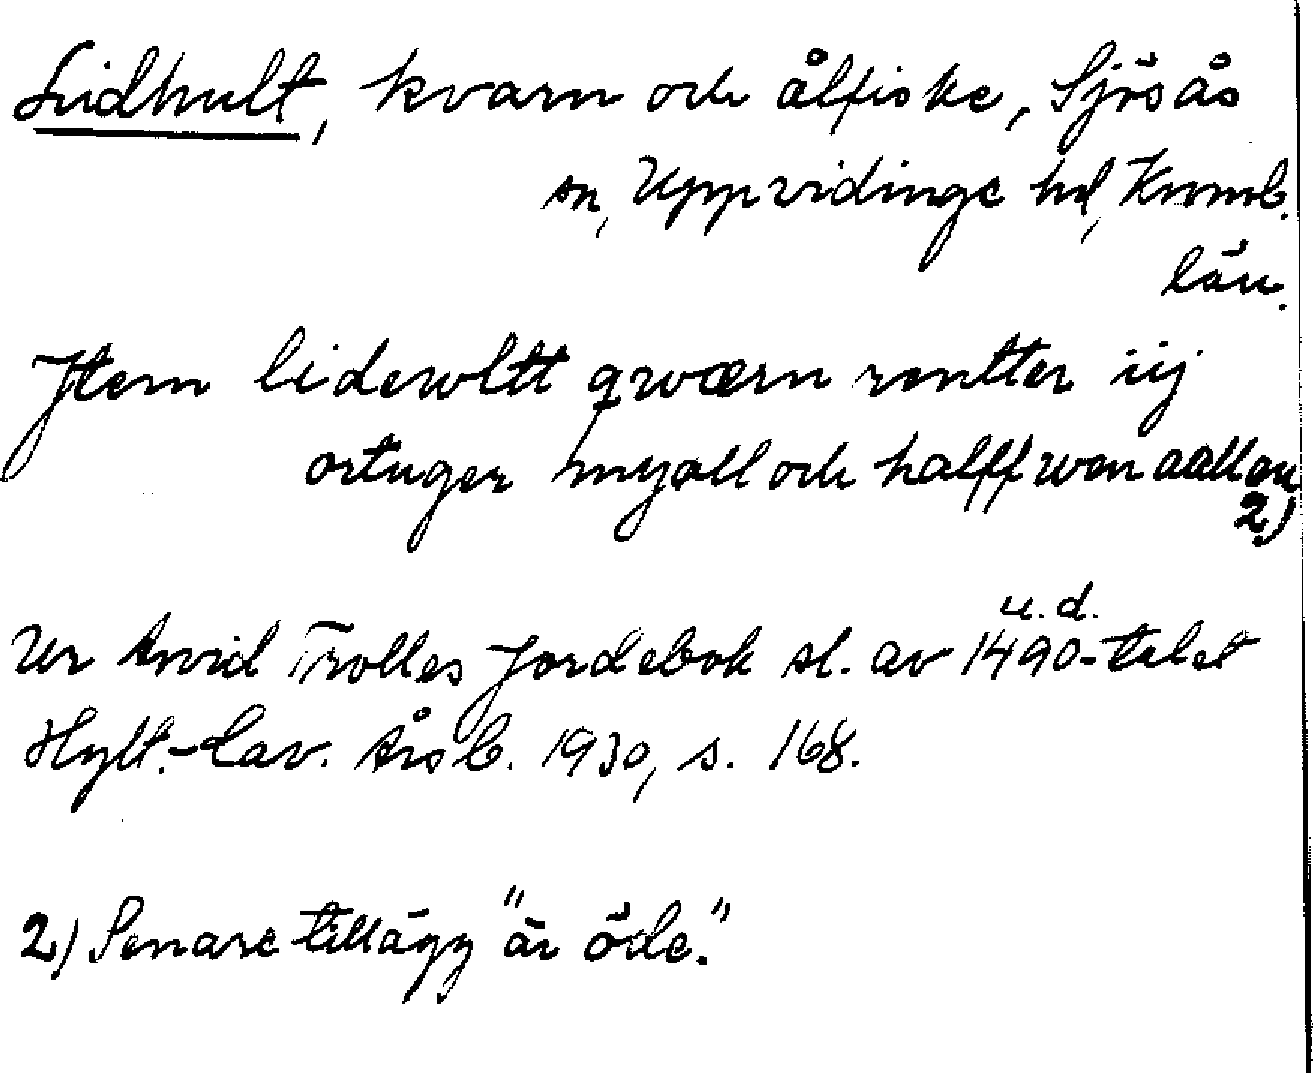 Lidhult, kvarn och ålfiske, Sjösås
sn, Uppvidinge hd, Kronob.
län.
Jtem lideroltt qwærn rentter iij
ortuger myøll och halff won aall an
2)
u.d.
Ur Arvid Trolles Jordebok sl. av 1490-talet
Hylt.-Cav. Årsb. 1930, s. 168.
2) Senare tillägg "är öde."